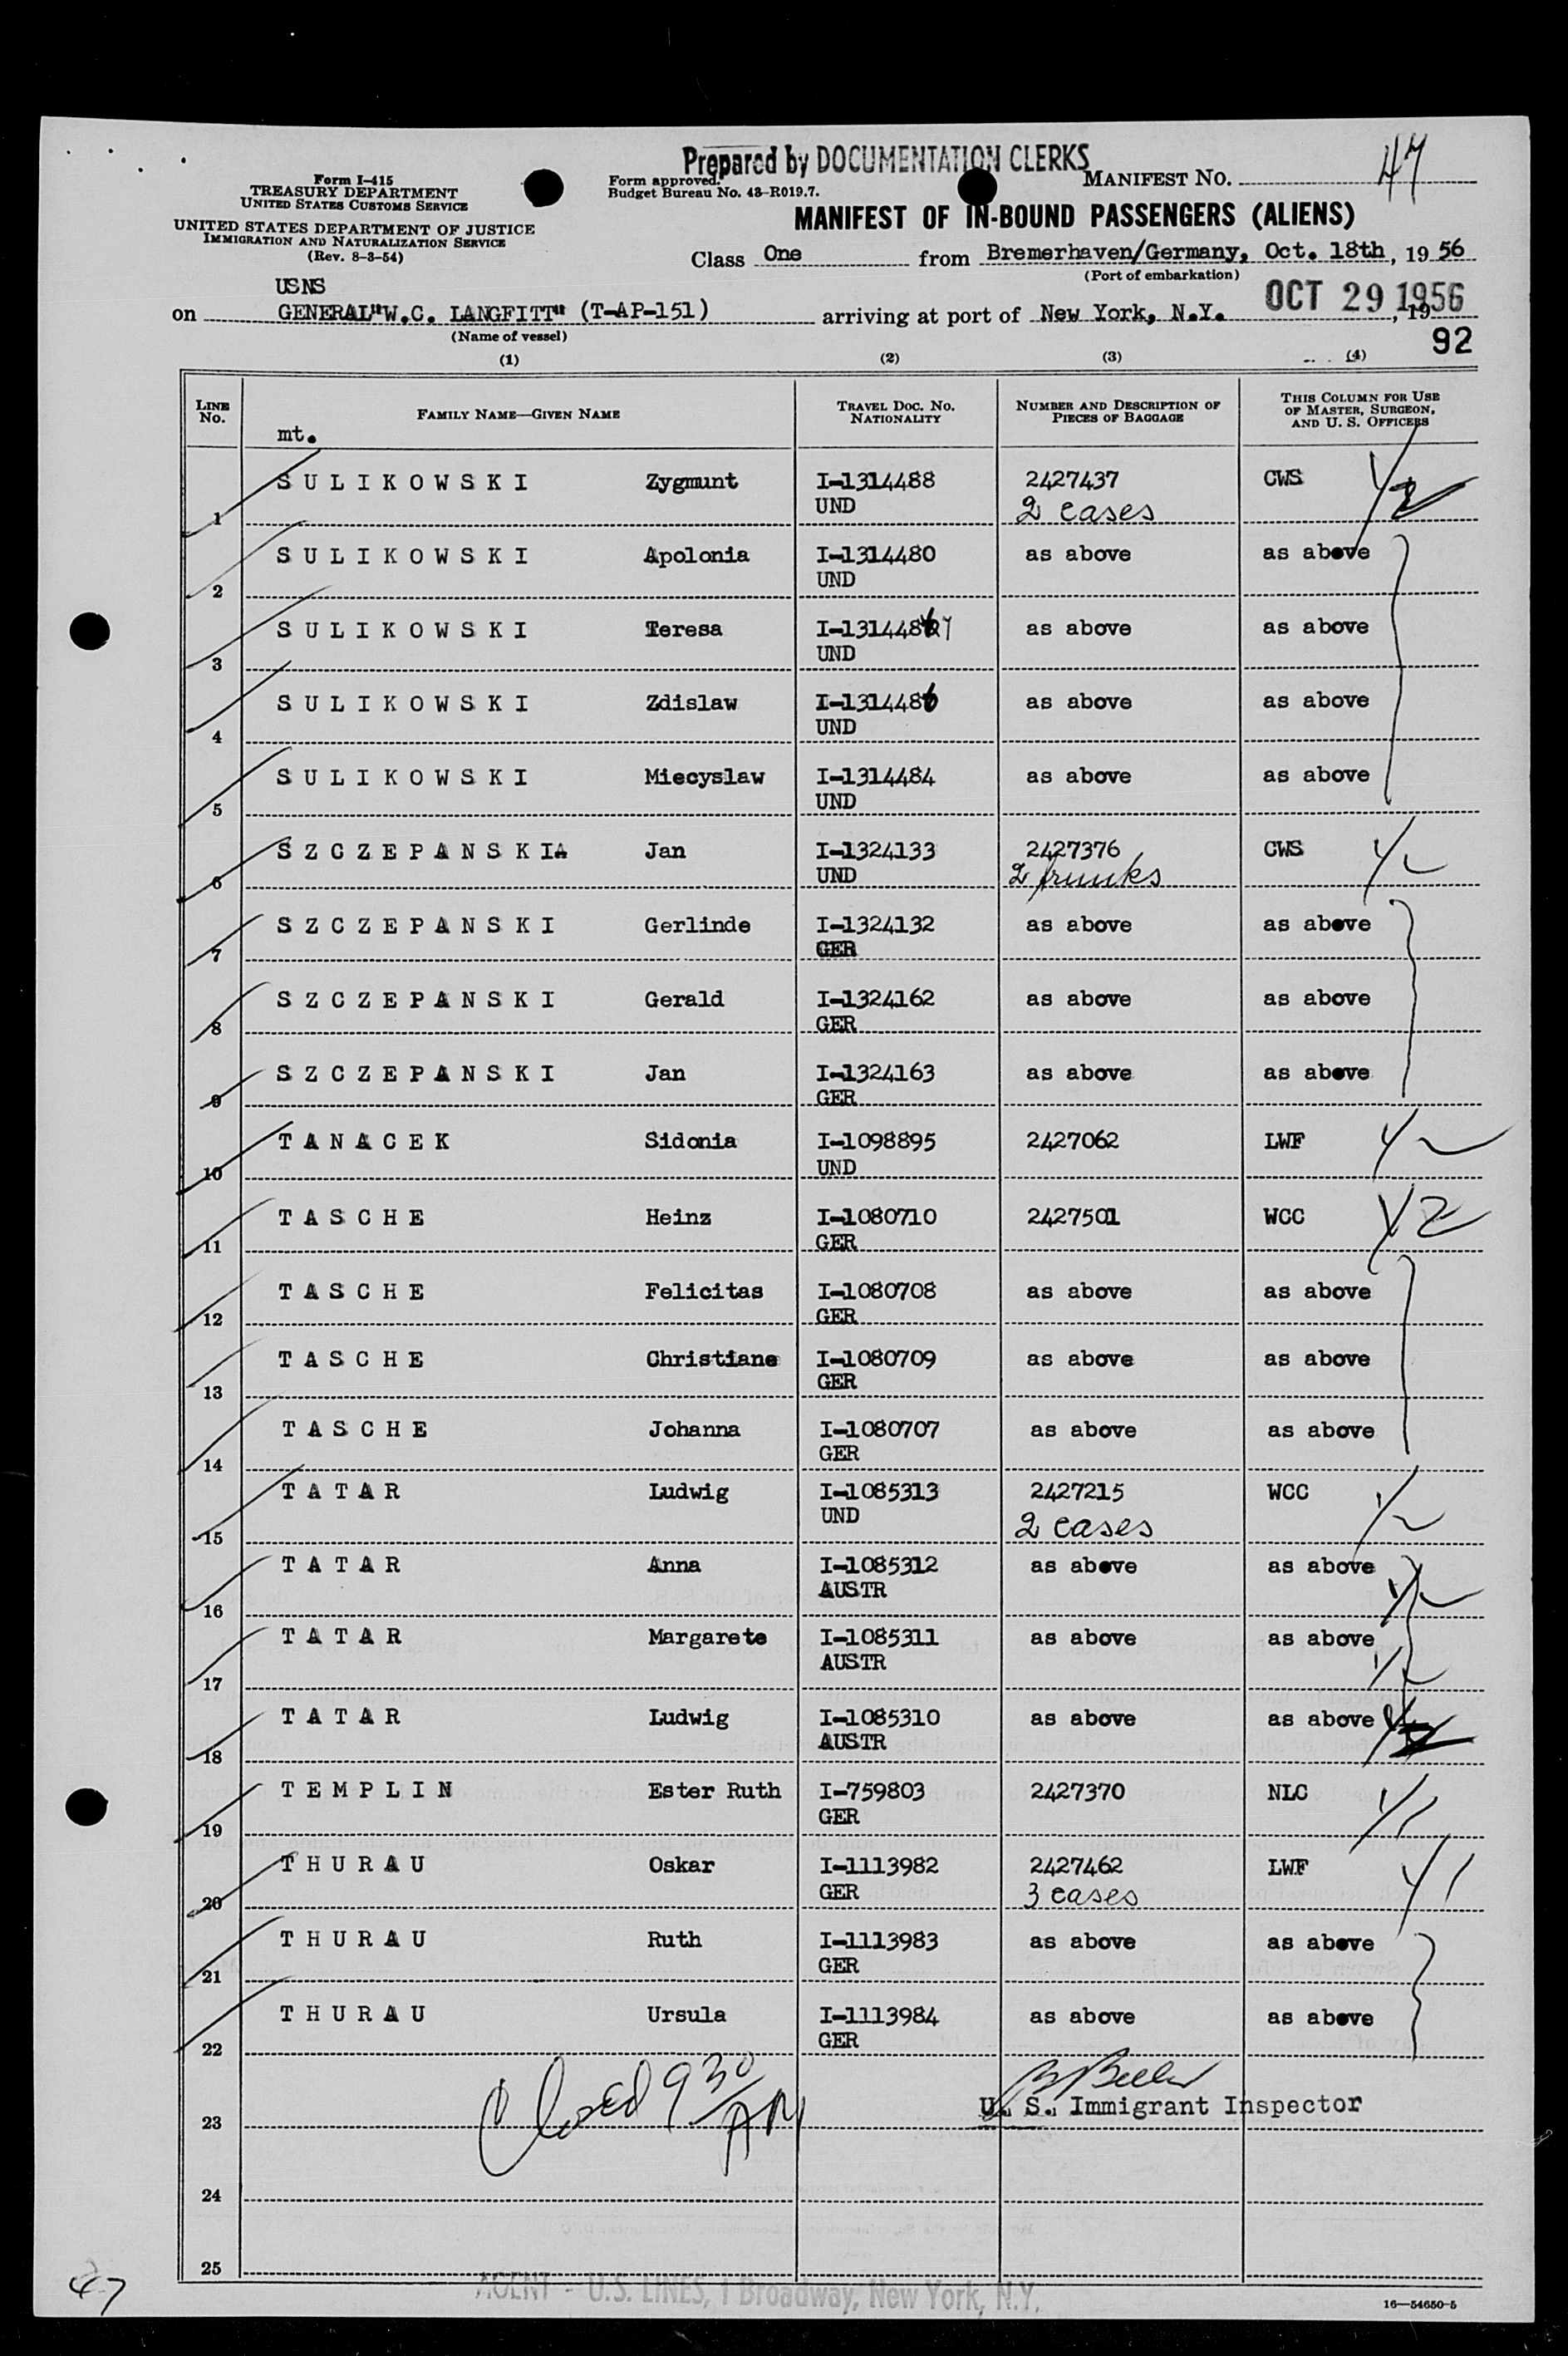 Prepared by DOCUMENTATION CLERKS
Form I-415
TREASURY DEPARTMENT
UNITED STATES CUSTOMS SERVICE
UNITED STATES DEPARTMENT OF JUSTICE
IMMIGRATION AND NATURALIZATION SERVICE
(Rev. 8-3-54)
Form approved.
Budget Bureau No. 43-R019.7.
MANIFEST NO. 47
MANIFEST OF IN-BOUND PASSENGERS (ALIENS)
Class One from Bremerhaven/Germany, Oct. 18th, 19 56
(Port of embarkation)
USNS
on GENERAL"W.C. LANGFITT" (T-AP-151) arriving at port of New York, N.Y. OCT 29 1956, 19
(Name of vessel)
92
(1) (2) (3) (4)
LINE NO. FAMILY NAME—GIVEN NAME TRAVEL DOC. NO. NATIONALITY NUMBER AND DESCRIPTION OF PIECES OF BAGGAGE THIS COLUMN FOR USE OF MASTER, SURGEON, AND U. S. OFFICERS
mt.
1 SULIKOWSKI Zygmunt I-1314488 2427437 CWS 1/2
UND 2 cases
2 SULIKOWSKI Apolonia I-1314480 as above as above
UND
3 SULIKOWSKI Teresa I-131448 as above as above
UND
4 SULIKOWSKI Zdislaw I-1314486 as above as above
UND
5 SULIKOWSKI Miecyslaw I-1314484 as above as above
UND
6 SZCZEPANSKI Jan I-1324133 2427376 CWS 1/2
UND 2 trunks
7 SZCZEPANSKI Gerlinde I-1324132 as above as above
GER
8 SZCZEPANSKI Gerald I-1324162 as above as above
GER
9 SZCZEPANSKI Jan I-1324163 as above as above
GER
10 TANACEK Sidonia I-1098895 2427062 LWF 1/2
UND
11 TASCHE Heinz I-1080710 2427501 WCC 1/2
GER
12 TASCHE Felicitas I-1080708 as above as above
GER
13 TASCHE Christiane I-1080709 as above as above
GER
14 TASCHE Johanna I-1080707 as above as above
GER
15 TATAR Ludwig I-1085313 2427215 WCC 1/2
UND 2 cases
16 TATAR Anna I-1085312 as above as above 1/2
AUSTR
17 TATAR Margarete I-1085311 as above as above 1/2
AUSTR
18 TATAR Ludwig I-1085310 as above as above 1/2
AUSTR
19 TEMPLIN Ester Ruth I-759803 2427370 NLC 1/1
GER
20 THURAU Oskar I-1113982 2427462 LWF 1/1
GER 3 cases
21 THURAU Ruth I-1113983 as above as above
GER
22 THURAU Ursula I-1113984 as above as above
GER
Closed 9 30/AM
23 U. S. Immigrant Inspector
24
25
AGENT - U.S. LINES, 1 Broadway, New York, N.Y.
47
16—54650-5